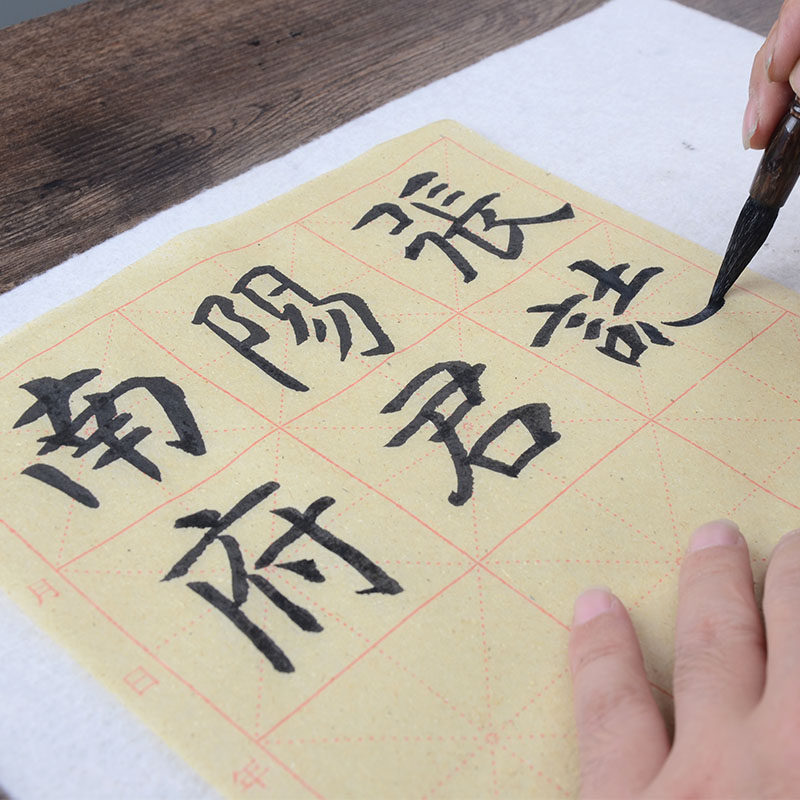 南陽張
府君
月
日
年